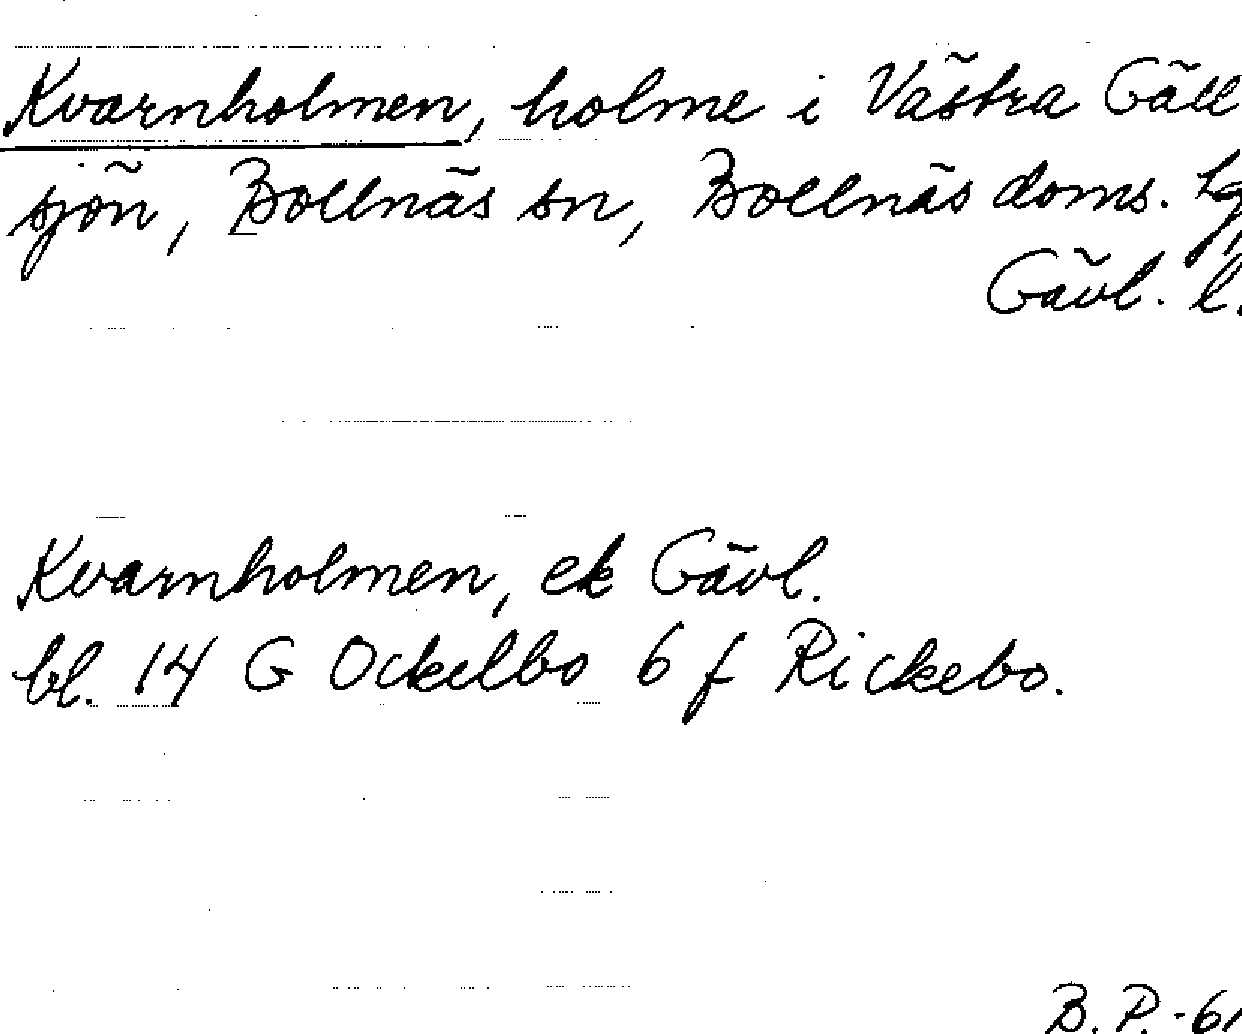 Kvarnholmen, holme i Västra Gäll
sjön, Bollnäs sn, Bollnäs doms. lg,
Gävl. l.
Kvarnholmen, ek Gävl.
bl. 14 G Ockelbo 6 f Rickebo.
B. P. -61